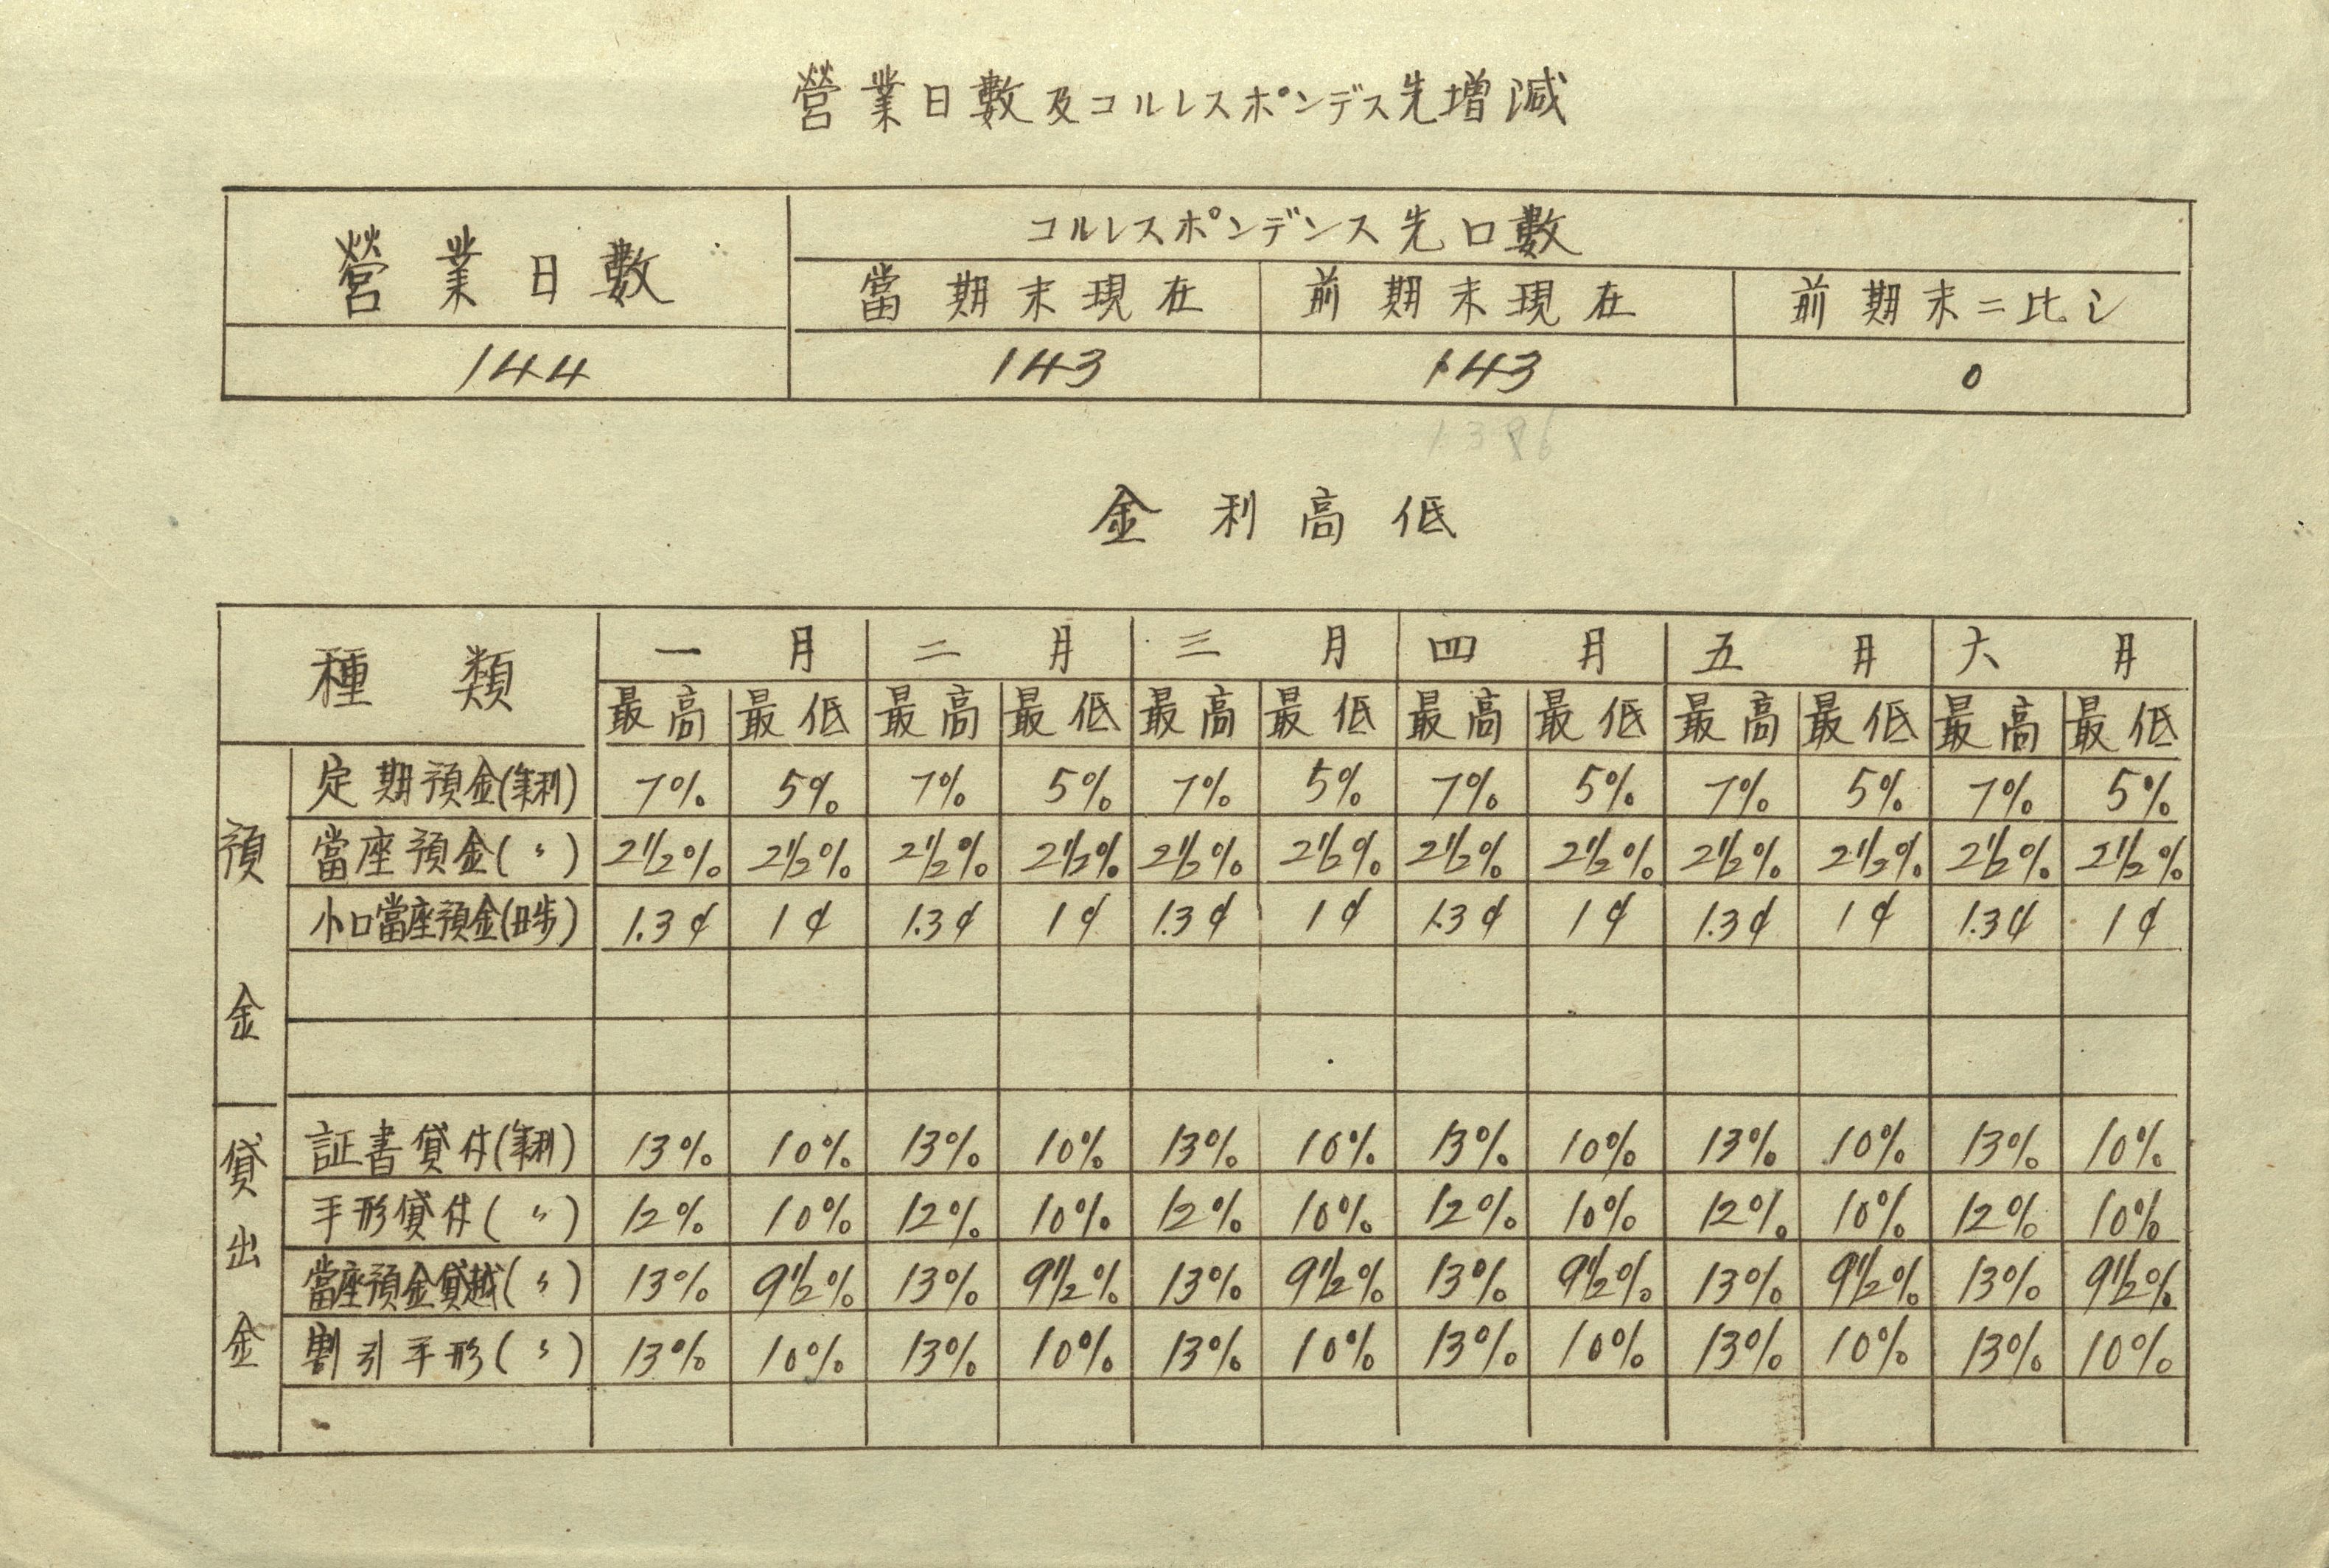 營業日數及コルレスポンデス先増減
營業日數 コルレスポンデンス先口數
當期末現在 前期末現在 前期末ニ比シ
144 143 143 0
1386
金利高低
種類 一月 二月 三月 四月 五月 六月
最高 最低 最高 最低 最高 最低 最高 最低 最高 最低 最高 最低
預金
定期預金(年利) 7% 5% 7% 5% 7% 5% 7% 5% 7% 5% 7% 5%
當座預金(〃) 2½% 2½% 2½% 2½% 2½% 2½% 2½% 2½% 2½% 2½% 2½% 2½%
小口當座預金(日歩) 1.3¢ 1¢ 1.3¢ 1¢ 1.3¢ 1¢ 1.3¢ 1¢ 1.3¢ 1¢ 1.3¢ 1¢
貸出金
証書貸付(年利) 13% 10% 13% 10% 13% 10% 13% 10% 13% 10% 13% 10%
手形貸付(〃) 12% 10% 12% 10% 12% 10% 12% 10% 12% 10% 12% 10%
當座預金貸越(〃) 13% 9½% 13% 9½% 13% 9½% 13% 9½% 13% 9½% 13% 9½%
割引手形(〃) 13% 10% 13% 10% 13% 10% 13% 10% 13% 10% 13% 10%